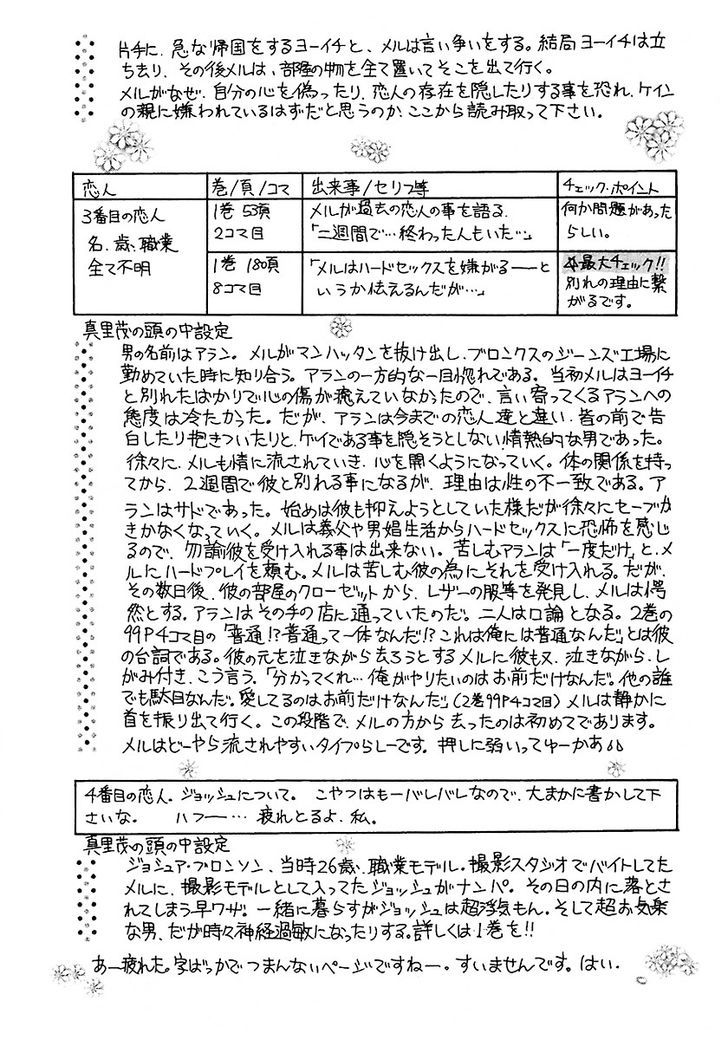 片手に、急な帰国をするヨーイチと、メルは言い争いをする。結局ヨーイチは立
ち去り、その後メルは、部屋の物を全て置いてそこを出て行く。
メルがなぜ、自分の心を偽ったり、恋人の存在を隠したりする事を恐れ、ケイン
の親に嫌われているはずだと思うのか、ここから読み取って下さい。
恋人
巻/頁/コマ
出来事/セリフ等
チェック・ポイント
3番目の恋人
名、歳、職業
全て不明
1巻 53項
2コマ目
メルが過去の恋人の事を語る。
「二週間で…終わった人もいた…」
何か問題があった
らしい。
1巻 180項
8コマ目
「メルはハードセックスを嫌がる――と
いうか怯えるんだが…」
最大チェック!!
別れの理由に繋
がるです。
真里茂の頭の中設定
男の名前はアラン。メルがマンハッタンを抜け出し、ブロンクスのジーンズ工場に
勤めていた時に知り合う。アランの一方的な一目惚れである。当初メルはヨーイチ
と別れたばかりで心の傷が癒えていなかったので、言い寄ってくるアランへの
態度は冷たかった。だが、アランは今までの恋人達と違い、皆の前で告
白したり抱きついたりと、ゲイである事を隠そうとしない情熱的な男であった。
徐々に、メルも情に流されていき、心を開くようになっていく。体の関係を持っ
てから、2週間で彼と別れる事になるが、理由は性の不一致である。ア
ランはサドであった。始めは彼も抑えようとしていた様だが徐々にセーブが
きかなくなっていく。メルは義父や男娼生活からハードセックスに恐怖を感じ
るので、勿論彼を受け入れる事は出来ない。苦しむアランは「一度だけ」と、メ
ルにハードプレイを頼む。メルは苦しむ彼の為にそれを受け入れる。だが、
その数日後、彼の部屋のクローゼットから、レザーの服等を発見し、メルは愕
然とする。アランはその手の店に通っていたのだ。二人は口論となる。2巻の
99P4コマ目の「普通!?普通って一体なんだ!?これは俺には普通なんだ」とは彼
の台詞である。彼の元を泣きながら去ろうとするメルに彼も又、泣きながら、し
がみ付き、こう言う。「分かってくれ…俺がやりたいのはお前だけなんだ。他の誰
でも駄目なんだ。愛してるのはお前だけなんだ」(2巻99P4コマ目)メルは静かに
首を振り出て行く。この段階で、メルの方から去ったのは初めてであります。
メルはどーやら流されやすいタイプらしーです。押しに弱いってゆーかあ
4番目の恋人。ジョッシュについて。 こやつはもーバレバレなので、大まかに書かして下
さいな。 ハフー… 疲れとるよ、私。
真里茂の頭の中設定
ジョシュア・ブロンソン、当時26歳、職業モデル。撮影スタジオでバイトしてた
メルに、撮影モデルとして入ってたジョッシュがナンパ。その日の内に落とさ
れてしまう早ワザ。一緒に暮らすがジョッシュは超浮気もん。そして超お気楽
な男、だが時々神経過敏になったりする。詳しくは1巻を!!
あー疲れた。字ばっかでつまんないページですねー。すいませんです。はい.